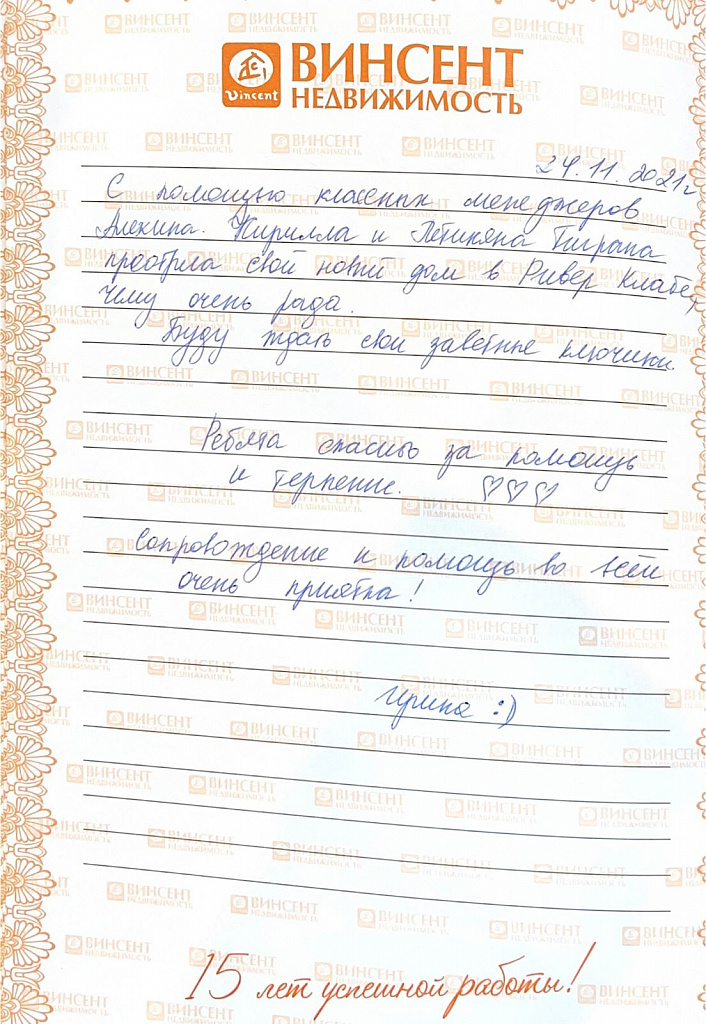 ВИНСЕНТ
НЕДВИЖИМОСТЬ
Vincent
24.11.2021г
С помощью классных менеджеров
Алекина. Кирилла и Петикяна Тиграна
приобрела свой новый дом в Ривер Клабе,
чему очень рада.
Буду ждать свои заветные ключики.
Ребята спасибо за помощь
и терпение. ♡♡♡
Сопровождение и помощь во всём
очень приятна!
Ирина :)
15 лет успешной работы!